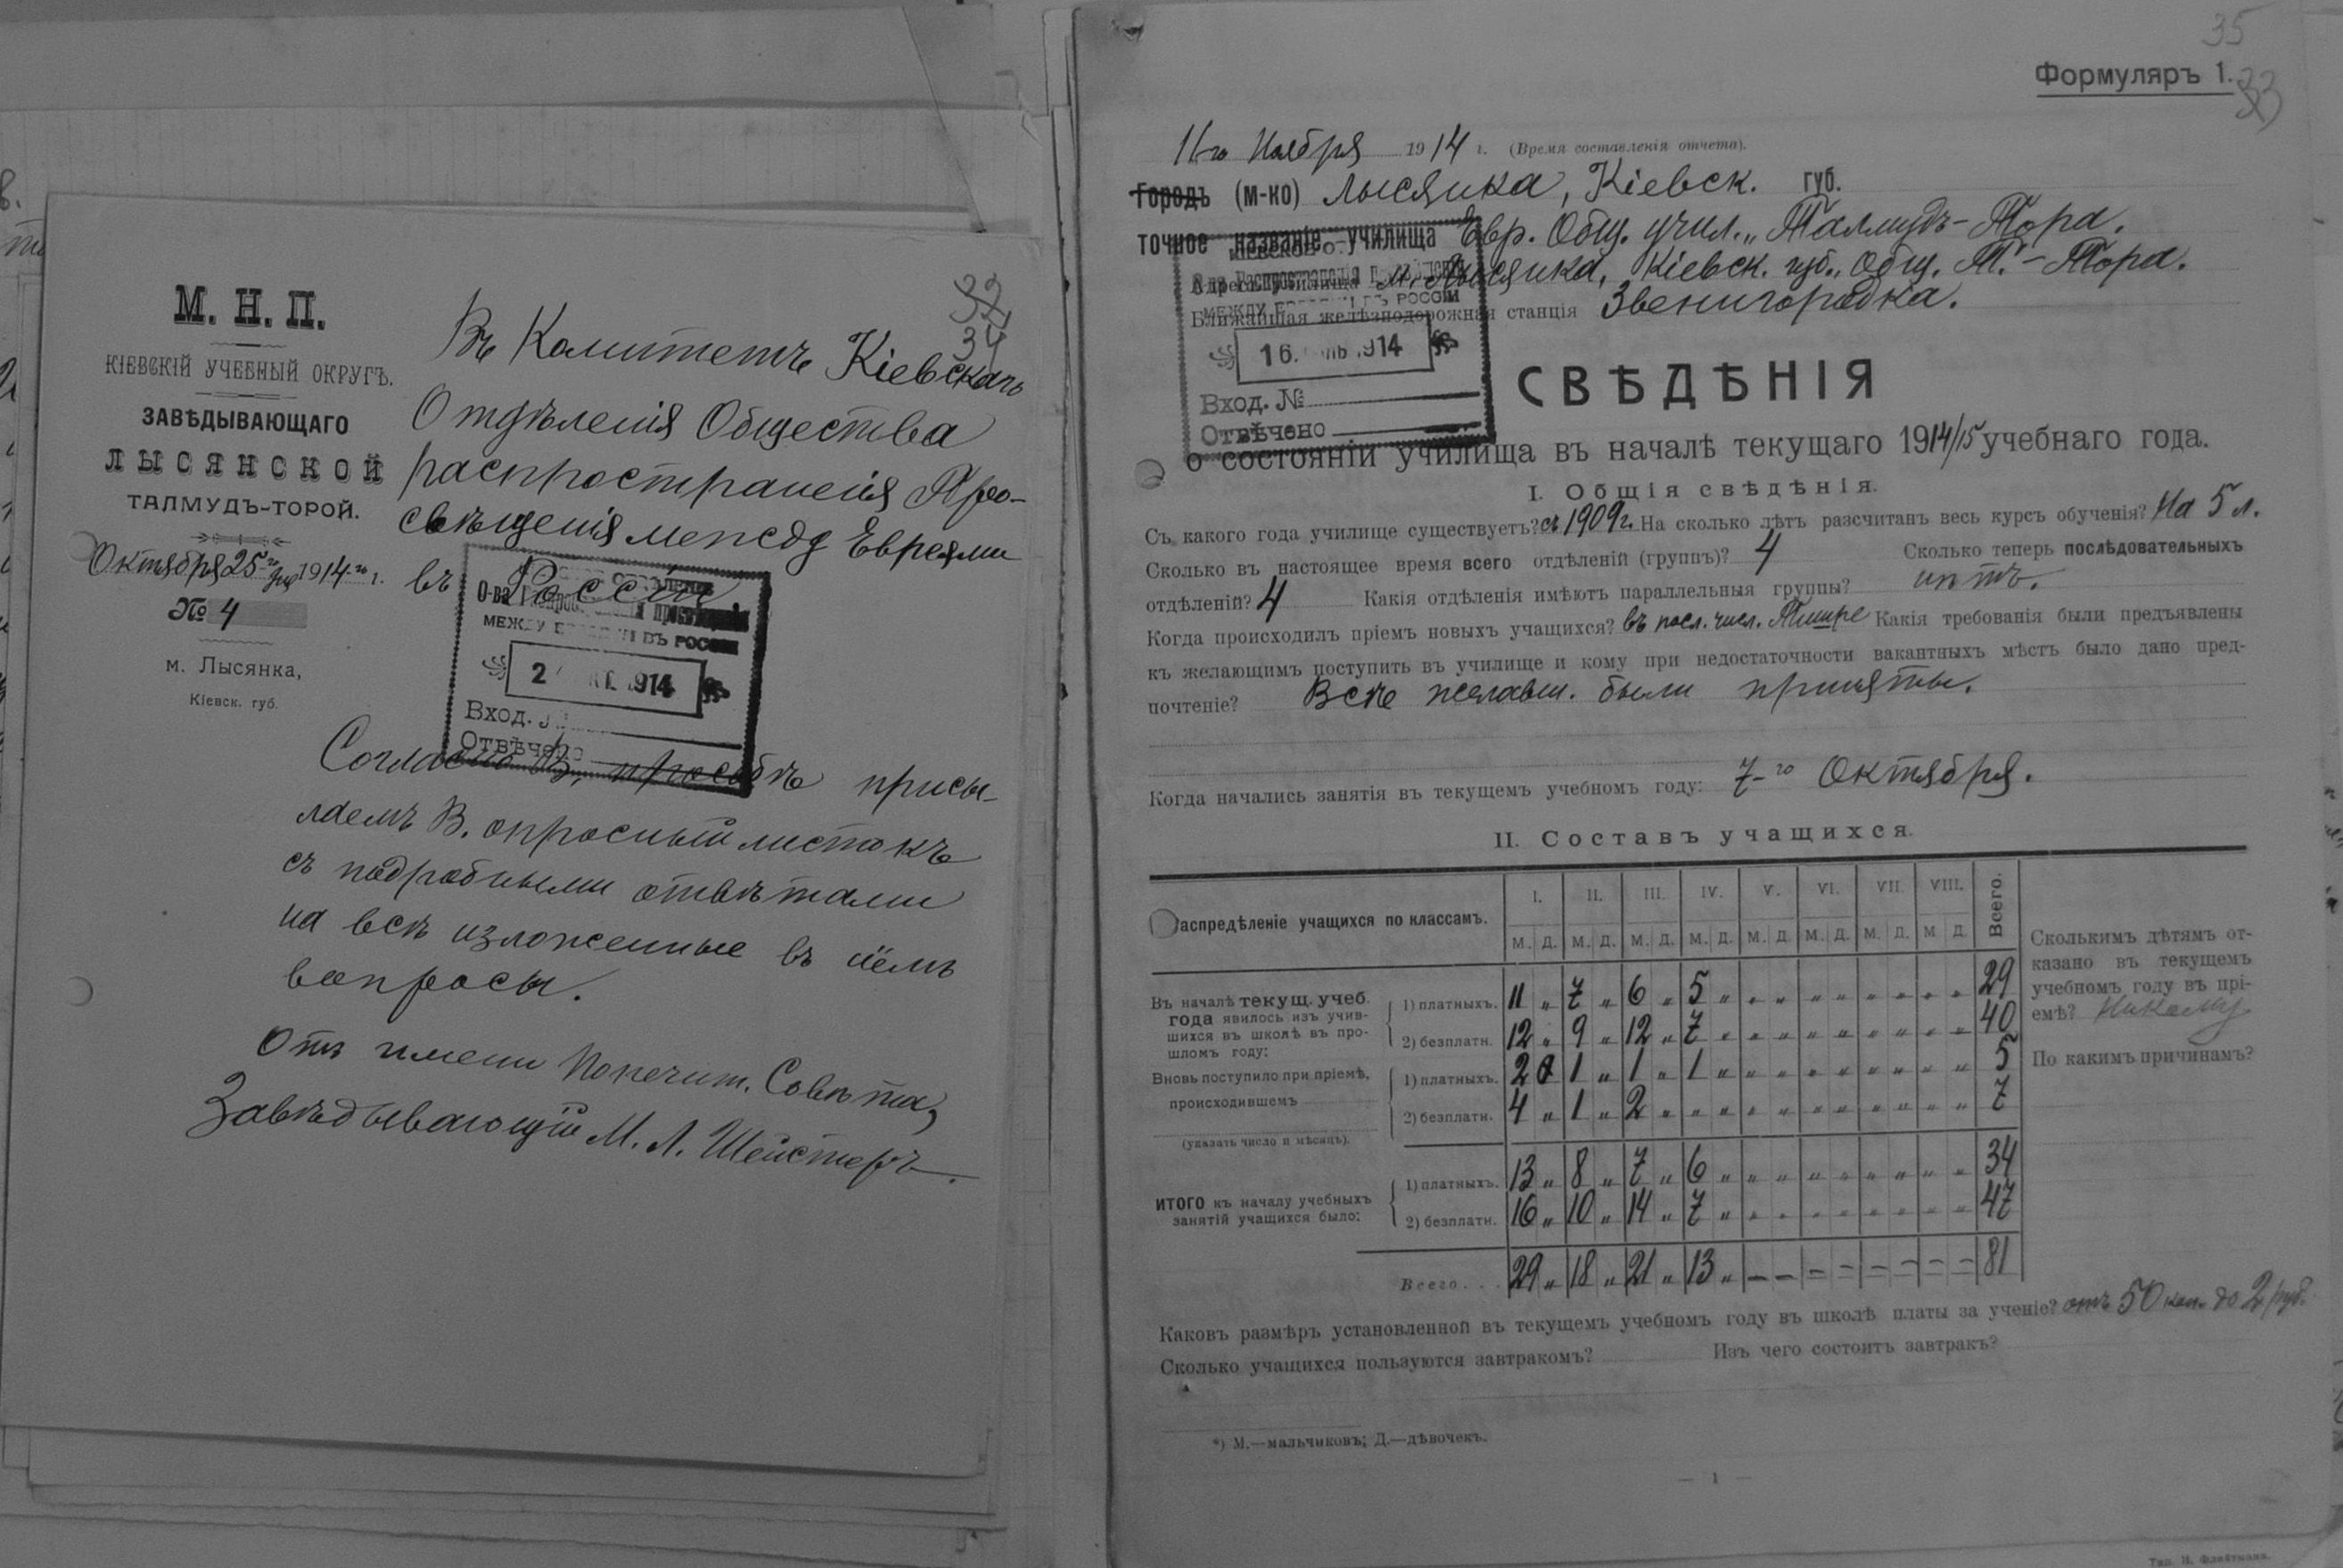 М. Н. П.
КІЕВСКІЙ УЧЕБНЫЙ ОКРУГЪ.
ЗАВѢДЫВАЮЩАГО
ЛЫСЯНСКОЙ
ТАЛМУДЪ-ТОРОЙ.
Октября 25 1914 г.
№ 4
м. Лысянка,
Кіевск. губ.
32
34
Въ Комитетъ Кіевскаго
Отдѣленія Общества
распространенія Про-
свѣщенія между Евреями
въ Россіи
О-ва
МЕЖДУ ВЪ РОССІИ
2 1914
Вход.
Отвѣчено
Согласно В. просьбѣ присы-
лаемъ В. опросный листокъ
съ подробными отвѣтами
на всѣ изложенные въ нёмъ
вопросы.
Отъ имени Попечит. Совѣта,
Завѣдывающій М. Л. Шейстеръ.
35
Формуляръ 1.
33
11-го Ноября 1914 г. (Время составленія отчета).
Городъ (м-ко) Лысянка, Кіевск. губ.
точное названіе училища Евр. Общ. учил. „Талмудъ-Тора.
Адресъ училища м. Лысянка, Кіевск. губ., Общ. Т.-Тора.
Ближайшая желѣзнодорожная станція Звенигородка.
КІЕВСКОЕ
МЕЖДУ ВЪ РОССІИ
16. 1914
Вход. №
Отвѣчено
СВѢДѢНІЯ
о состояніи училища въ началѣ текущаго 1914/15 учебнаго года.
I. Общія свѣдѣнія.
Съ какого года училище существуетъ? съ 1909 г. На сколько лѣтъ разсчитанъ весь курсъ обученія? На 5 л.
Сколько въ настоящее время всего отдѣленій (группъ)? 4 Сколько теперь послѣдовательныхъ
отдѣленій? 4 Какія отдѣленія имѣютъ параллельныя группы? нѣтъ.
Когда происходилъ пріемъ новыхъ учащихся? въ посл. числ. Тишре Какія требованія были предъявлены
къ желающимъ поступить въ училище и кому при недостаточности вакантныхъ мѣстъ было дано пред-
почтеніе? Всѣ желавш. были приняты.
Когда начались занятія въ текущемъ учебномъ году: 7-го Октября.
II. Составъ учащихся.
Распредѣленіе учащихся по классамъ. I. II. III. IV. V. VI. VII. VIII. Всего.
М. Д. М. Д. М. Д. М. Д. М. Д. М. Д. М. Д. М. Д.
Въ началѣ текущ. учеб. года явилось изъ учив-шихся въ школѣ въ про-шломъ году:
1) платныхъ. 11 „ 7 „ 6 „ 5 „ „ „ „ „ „ „ „ „ 29
2) безплатн. 12 „ 9 „ 12 „ 7 „ „ „ „ „ „ „ „ „ 40
Вновь поступило при пріемѣ, происходившемъ
(указать число и мѣсяцъ).
1) платныхъ. 2 1 „ 1 „ 1 „ „ „ „ „ „ „ „ „ 5
2) безплатн. 4 „ 1 „ 2 „ „ „ „ „ „ „ „ „ „ „ 7
ИТОГО къ началу учебныхъ занятій учащихся было:
1) платныхъ. 13 „ 8 „ 7 „ 6 „ „ „ „ „ „ „ „ „ 34
2) безплатн. 16 „ 10 „ 14 „ 7 „ „ „ „ „ „ „ „ „ 47
Всего . . . 29 „ 18 „ 21 „ 13 „ — — — — — — — — 81
Сколькимъ дѣтямъ от-
казано въ текущемъ
учебномъ году въ прі-
емѣ? Никому
По какимъ причинамъ?
Каковъ размѣръ установленной въ текущемъ учебномъ году въ школѣ платы за ученіе? отъ 50 коп. до 2 руб.
Сколько учащихся пользуются завтракомъ? Изъ чего состоитъ завтракъ?
*) М.—мальчиковъ; Д.—дѣвочекъ.
— 1 —